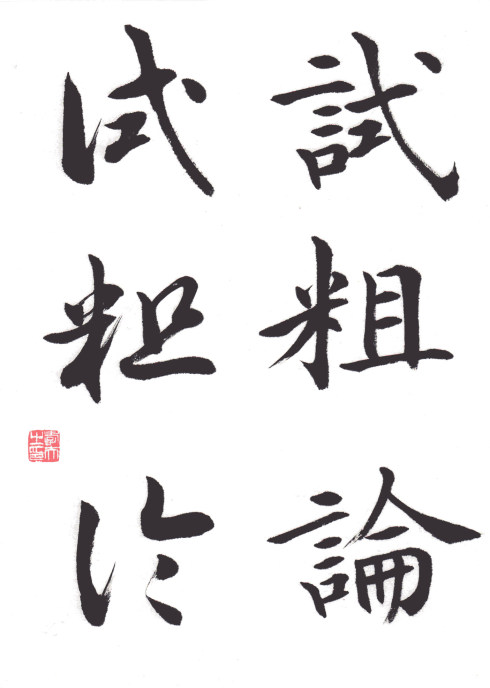 試粗論
試粗論